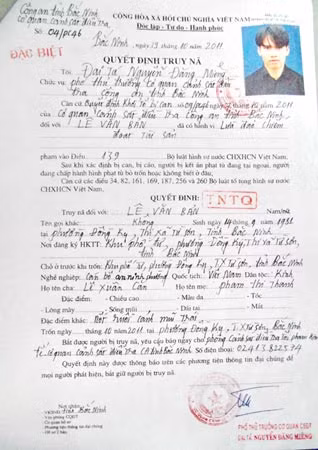 Công an tỉnh Bắc Ninh
Cơ quan cảnh sát điều tra
Số 04/PC46
CỘNG HÒA XÃ HỘI CHỦ NGHĨA VIỆT NAM
Độc lập - Tự do - Hạnh phúc
ĐẶC BIỆT
Bắc Ninh, ngày 19 tháng 10 năm 2011
QUYẾT ĐỊNH TRUY NÃ
Tôi: Đại tá Nguyễn Đăng Miêng
Chức vụ: phó thủ trưởng cơ quan cảnh sát điều
tra công an tỉnh Bắc Ninh
Căn cứ Quyết định khởi tố bị can số tháng 10/2011
của Cơ quan cảnh sát điều tra công an tỉnh Bắc Ninh
đối với LÊ VĂN BẢN đã có hành vi Lừa đảo chiếm
đoạt tài sản
phạm vào Điều 139 Bộ luật hình sự nước CHXHCN Việt Nam.
Sau khi xác định bị can, bị cáo, người bị kết án phạt tù đang tại ngoại, người đang
chấp hành hình phạt tù bỏ trốn hoặc không biết đang ở đâu.
Căn cứ các điều 34, 82, 161, 169, 187, 256 và 260 Bộ luật tố tụng hình sự nước
CHXHCN Việt Nam.
QUYẾT ĐỊNH:
TNTQ
Truy nã đối với: LÊ VĂN BẢN Nam/nữ
Tên gọi khác: Không Sinh ngày 9 1988
tại phường Đồng Kỵ, Thị xã Từ Sơn, Tỉnh Bắc Ninh
Nơi đăng ký HKTT: Khu phố, phường Đồng Kỵ, Thị xã Từ Sơn,
tỉnh Bắc Ninh
Chỗ ở trước khi trốn: Khu phố, phường Đồng Kỵ, TX Từ Sơn, tỉnh Bắc Ninh
Nghề nghiệp: Cán bộ phường Quốc tịch: Việt Nam Dân tộc: Kinh
Họ tên cha: Lê Xuân Căn Họ tên mẹ: Phạm Thị Thanh
Đặc điểm: - Chiều cao - Màu da - Tóc
- Lông mày - Sống mũi - Dái tai - Mắt
Đặc điểm khác: cánh mũi
Trốn ngày tháng 10/2011 tại phường Đồng Kỵ, TX Từ Sơn, Bắc Ninh
Bắt được người bị truy nã, yêu cầu báo ngay cho phòng cảnh sát điều tra
cơ quan cảnh sát điều tra CA tỉnh Bắc Ninh Số điện thoại: 02413822594
Quyết định này được thông báo trên các phương tiện thông tin đại chúng để
mọi người phát hiện, bắt giữ người bị truy nã.
Nơi nhận:
PHÓ THỦ TRƯỞNG CƠ QUAN CSĐT
ĐẠI TÁ NGUYỄN ĐĂNG MIÊNG